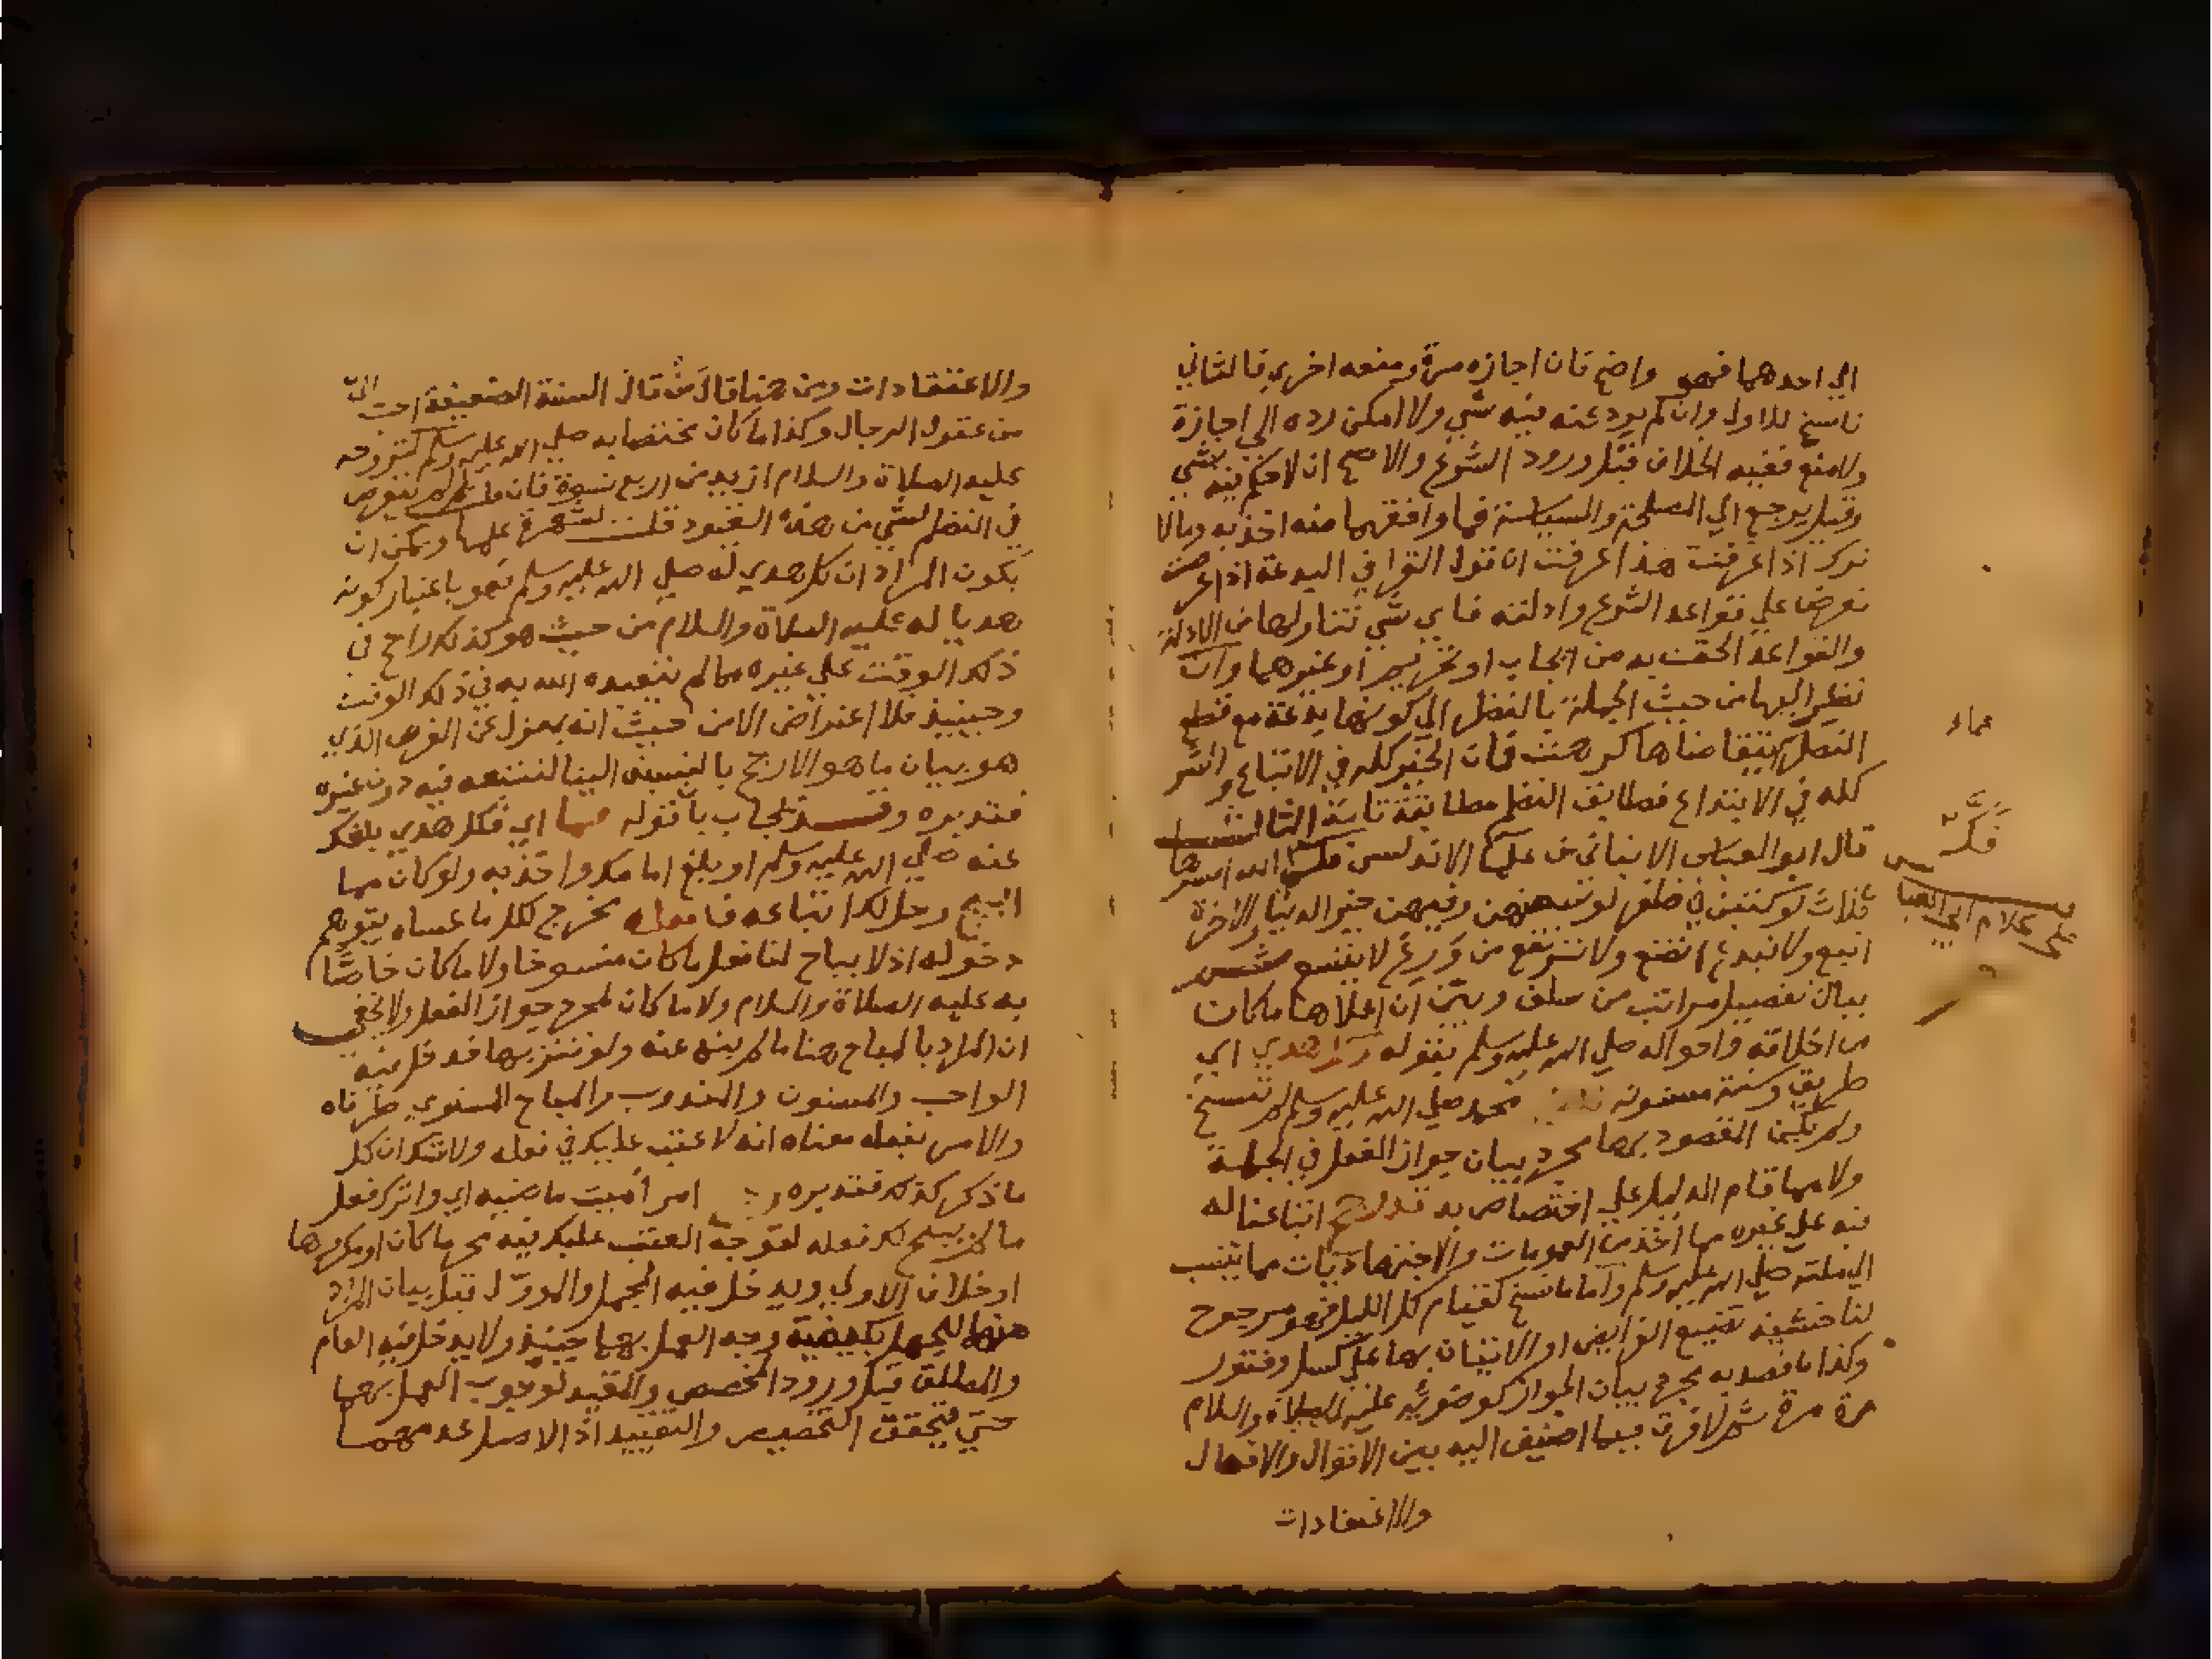 الي احدهما فهو واضح فان اجازه مرة ومنعه اخري فالثاني
ناسخ للاول وان لم يرد عنه فيه شي ولا امكن رده الي اجازة
ولا منع ففيه الخلاف قبل ورود الشرع والاصح ان لا حكم فيه
وقيل يرجع الي المصلحة والسياسة فما وافقهما منه اخذ به وما لا
ترك اذا عرفت هذا عرفت ان قول القرافي البدعة اذا عرضت
تعرض علي قواعد الشرع وادلته فاي شي تناولها من الادلة
والقواعد الحقت به من ايجاب او تحريم او غيرهما وان
نظر اليها من حيث الجملة بالنظر الي كونها بدعة مع قطع
النظر عما يتقاضاها كرهت فان الخير كله في الاتباع والشر
كله في الابتداع مطابق النظم مطابقة تامة الثالث
قال ابو العباس الابياني من علما الاندلس
ثلاث لو كتبن في ظفر لوسعهن وفيهن خير الدنيا والاخرة
اتبع ولا تبتدع اتضع ولا ترتفع من ورع لا يتسع
بيان تفصيل مراتب من سلف وبين ان اعلاها ما كان
من اخلاقه واحواله صلي الله عليه وسلم بقوله هدي اي
طريق وسنة منسوبة محمد صلي الله عليه وسلم لم تنسخ
ولم يكن المقصود بها مجرد بيان جواز الفعل في الجملة
ولا مما قام الدليل علي اختصاص به اتباعنا له
فيه علي غيره مما اخذ من العمومات والاجتهاديات مما ينسب
الي ملته صلي الله عليه وسلم واما ما نسخ كقيام كل الليل فهو مرجوح
لنا خشية تضييع الفرايض او الاتيان بها علي كسل وفتور
وكذا ما قصد به مجرد بيان الجواز كوضوئه عليه الصلاة والسلام
مرة مرة ثم لا فرق فيما اضيف اليه بين الاقوال والافعال
والاعتقادات
علي كلام ابي العبا
والاعتقادات ومن هنا قال من قال السنة الضعيفة احب الي
من عقول الرجال وكذا ما كان مختصا به صلي الله عليه وسلم كتزوجه
عليه الصلاة والسلام ازيد من اربع نسوة فان قلت لم لم يتعرض
في النظم لشي من هذه القيود قلت لشهرة علمها ويمكن ان
يكون المراد ان كل هدي له صلي الله عليه وسلم فهو باعتبار كونه
هديا له عليه الصلاة والسلام من حيث هو كذلك راجح في
ذلك الوقت علي غيره مما لم يتعبده الله به في ذلك الوقت
وحينيذ فلا اعتراض الا من حيث انه بمعزل عن الغرض الذي
هو بيان ما هو الارجح بالنسبة الينا لنتبعه فيه دون غيره
فتدبره وقد يجاب بان قوله فما اي فكل هدي بلغك
عنه صلي الله عليه وسلم او بلغ امامك واخذ به ولو كان مما
ابيح وحل لك اتباعه فافعله مخرج لكل ما عساه يتوهم
دخوله اذ لا يباح لنا فعل ما كان منسوخا ولا ما كان خاصا
به عليه الصلاة والسلام ولا ما كان لمجرد جواز الفعل ولا يخفي
ان المراد بالمباح هنا ما لم ينه عنه ولو تنزيها فدخل فيه
الواجب والمسنون والمندوب والمباح المستوي طرفاه
والامر بفعله معناه انه لا عتب عليك في فعله ولا شك ان كل
ما ذكر كذلك فتدبره امر اميت ماضيه اي واترك فعل
ما لم يبح لك فعله لتوجه العتب عليك فيه محرما كان او مكروها
او خلاف الاولي ويدخل فيه المجمل والموول قبل بيان المراد
منهما للجهل بكيفية وجه العمل بهما حينيذ ولا يدخل فيه العام
والمطلق قبل ورود المخصص والمقيد لوجوب العمل بهما
حتي يتحقق التخصيص والتقييد اذ الاصل عدمهما